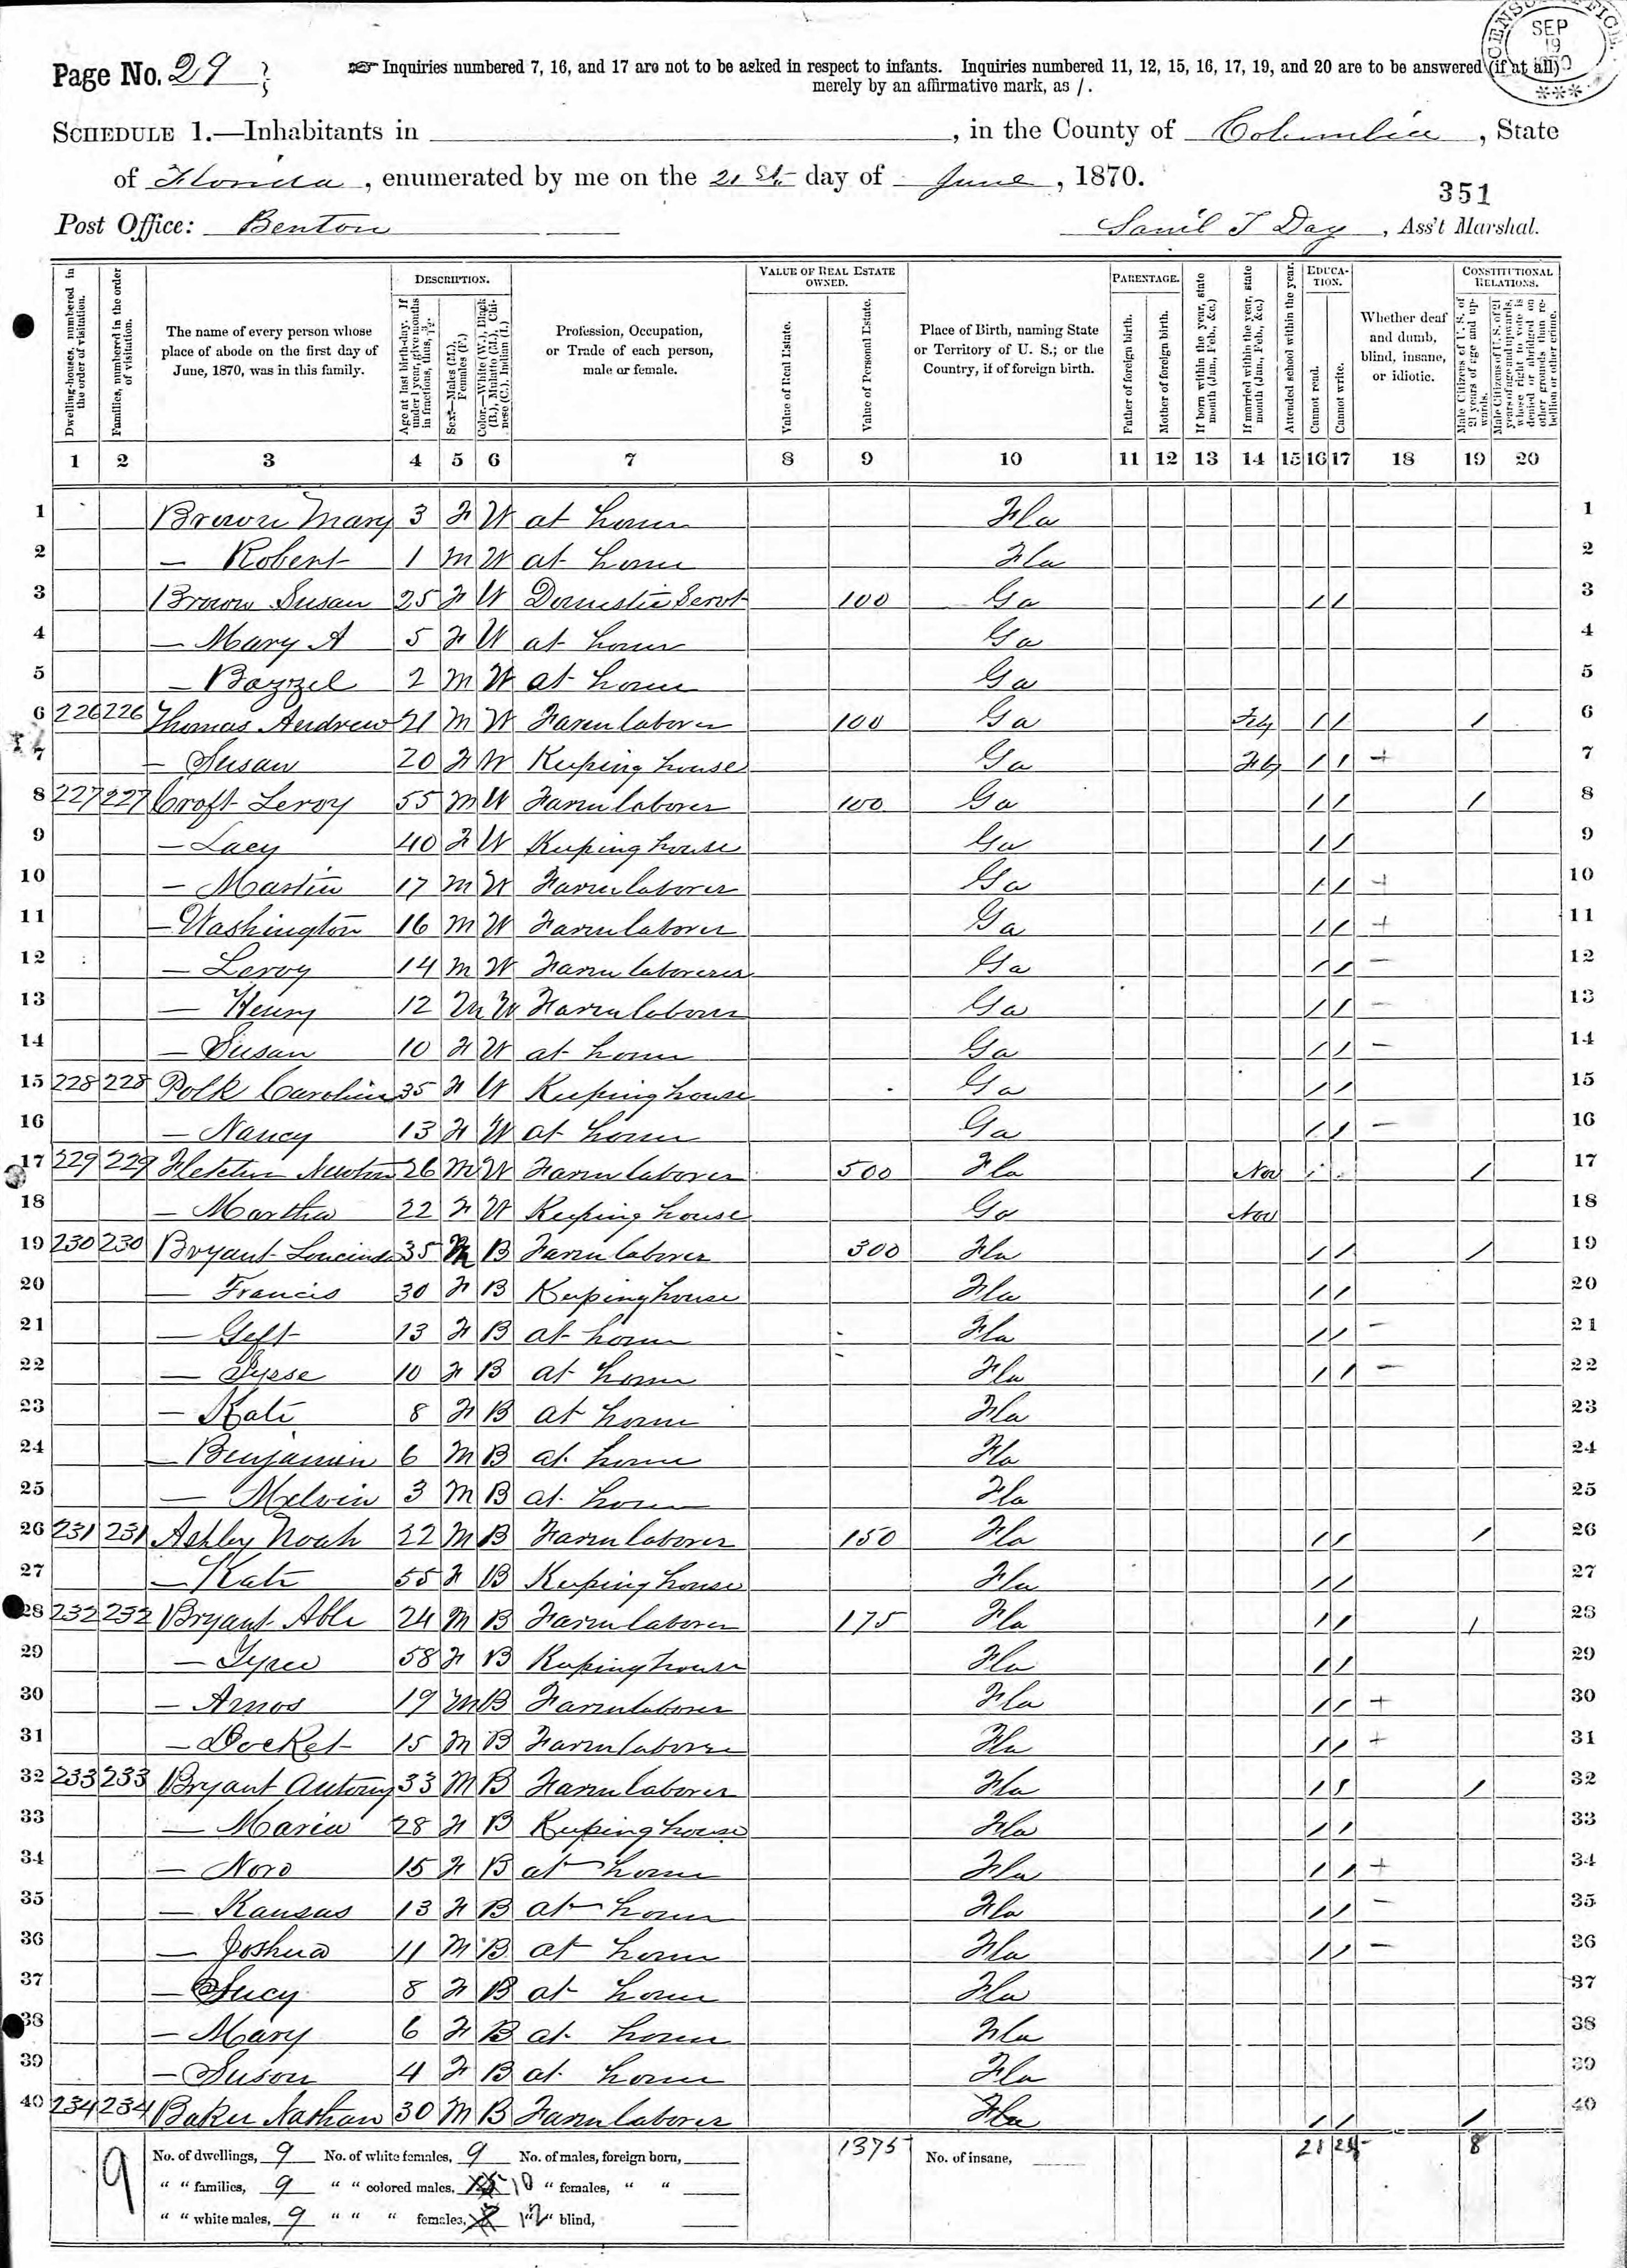 CENSUS OFFICE SEP 19 ***
Page No. 29
Inquiries numbered 7, 16, and 17 are not to be asked in respect to infants. Inquiries numbered 11, 12, 15, 16, 17, 19, and 20 are to be answered (if at all)
merely by an affirmative mark, as /.
SCHEDULE 1.—Inhabitants in , in the County of Columbia, State
of Florida, enumerated by me on the 21 St. day of June, 1870.
351
Post Office: Benton Saml T Day, Ass't Marshal.
Dwelling-houses, numbered in the order of visitation.
Families, numbered in the order of visitation.
The name of every person whose place of abode on the first day of June, 1870, was in this family.
DESCRIPTION.
Age at last birth-day. If under 1 year, give months in fractions, thus, 3/12.
Sex.—Males (M.), Females (F.)
Color.—White (W.), Black (B.), Mulatto (M.), Chinese (C.), Indian (I.)
Profession, Occupation, or Trade of each person, male or female.
VALUE OF REAL ESTATE OWNED.
Value of Real Estate.
Value of Personal Estate.
Place of Birth, naming State or Territory of U. S.; or the Country, if of foreign birth.
PARENTAGE.
Father of foreign birth.
Mother of foreign birth.
If born within the year, state month (Jan., Feb., &c.)
If married within the year, state month (Jan., Feb., &c.)
Attended school within the year.
EDUCATION.
Cannot read.
Cannot write.
Whether deaf and dumb, blind, insane, or idiotic.
CONSTITUTIONAL RELATIONS.
Male Citizens of U. S. of 21 years of age and upwards.
Male Citizens of U. S. of 21 years of age and upwards, whose right to vote is denied or abridged on other grounds than rebellion or other crime.
1 2 3 4 5 6 7 8 9 10 11 12 13 14 15 16 17 18 19 20
1 Brown Mary 3 F W at home Fla 1
2 — Robert 1 M W at home Fla 2
3 Brown Susan 25 F W Domestic Servt 100 Ga / / 3
4 — Mary A 5 F W at home Ga 4
5 — Bazzel 2 M W at home Ga 5
6 226 226 Thomas Andrew 21 M W Farm laborer 100 Ga Feby / / / 6
7 — Susan 20 F W Keeping house Ga Feby / / + 7
8 227 227 Croft Leroy 55 M W Farm laborer 100 Ga / / / 8
9 — Lacy 40 F W Keeping house Ga / / 9
10 — Martin 17 M W Farm laborer Ga / / + 10
11 — Washington 16 M W Farm laborer Ga / / + 11
12 — Leroy 14 M W Farm laborer Ga / / — 12
13 — Henry 12 M W Farm laborer Ga / / — 13
14 — Susan 10 F W at home Ga / / — 14
15 228 228 Polk Caroline 35 F W Keeping house Ga / / 15
16 — Nancy 13 F W at home Ga / / — 16
17 229 229 Newton 26 M W Farm laborer 500 Fla Nov / 17
18 — Martha 22 F W Keeping house Ga Nov 18
19 230 230 Bryant Loucinda 35 M B Farm laborer 300 Fla / / / 19
20 — Francis 30 F B Keeping house Fla / / 20
21 — Geft 13 F B at home Fla / / — 21
22 — 10 F B at home Fla / / — 22
23 — Kate 8 F B at home Fla 23
24 — Benjamin 6 M B at home Fla 24
25 — Melvin 3 M B at home Fla 25
26 231 231 Ashley Noah 22 M B Farm laborer 150 Fla / / / 26
27 — Kate 55 F B Keeping house Fla / / 27
28 232 232 Bryant Able 24 M B Farm laborer 175 Fla / / / 28
29 — 58 F B Keeping house Fla / / 29
30 — Amos 19 M B Farm laborer Fla / / + 30
31 — Docket 15 M B Farm laborer Fla / / + 31
32 233 233 Bryant Antony 33 M B Farm laborer Fla / / / 32
33 — Maria 28 F B Keeping house Fla / / 33
34 — Noro 15 F B at home Fla / / + 34
35 — Kansas 13 F B at home Fla / / — 35
36 — Joshua 11 M B at home Fla / / — 36
37 — Lucy 8 F B at home Fla 37
38 — Mary 6 F B at home Fla 38
39 — Suson 4 F B at home Fla 39
40 234 234 Baker Nathan 30 M B Farm laborer Fla / / / 40
9 No. of dwellings, 9 No. of white females, 9 No. of males, foreign born, 1375 No. of insane, 8
" " families, 9 " " colored males, 10 " females, " "
" " white males, 9 " " " females, 12 " " blind,